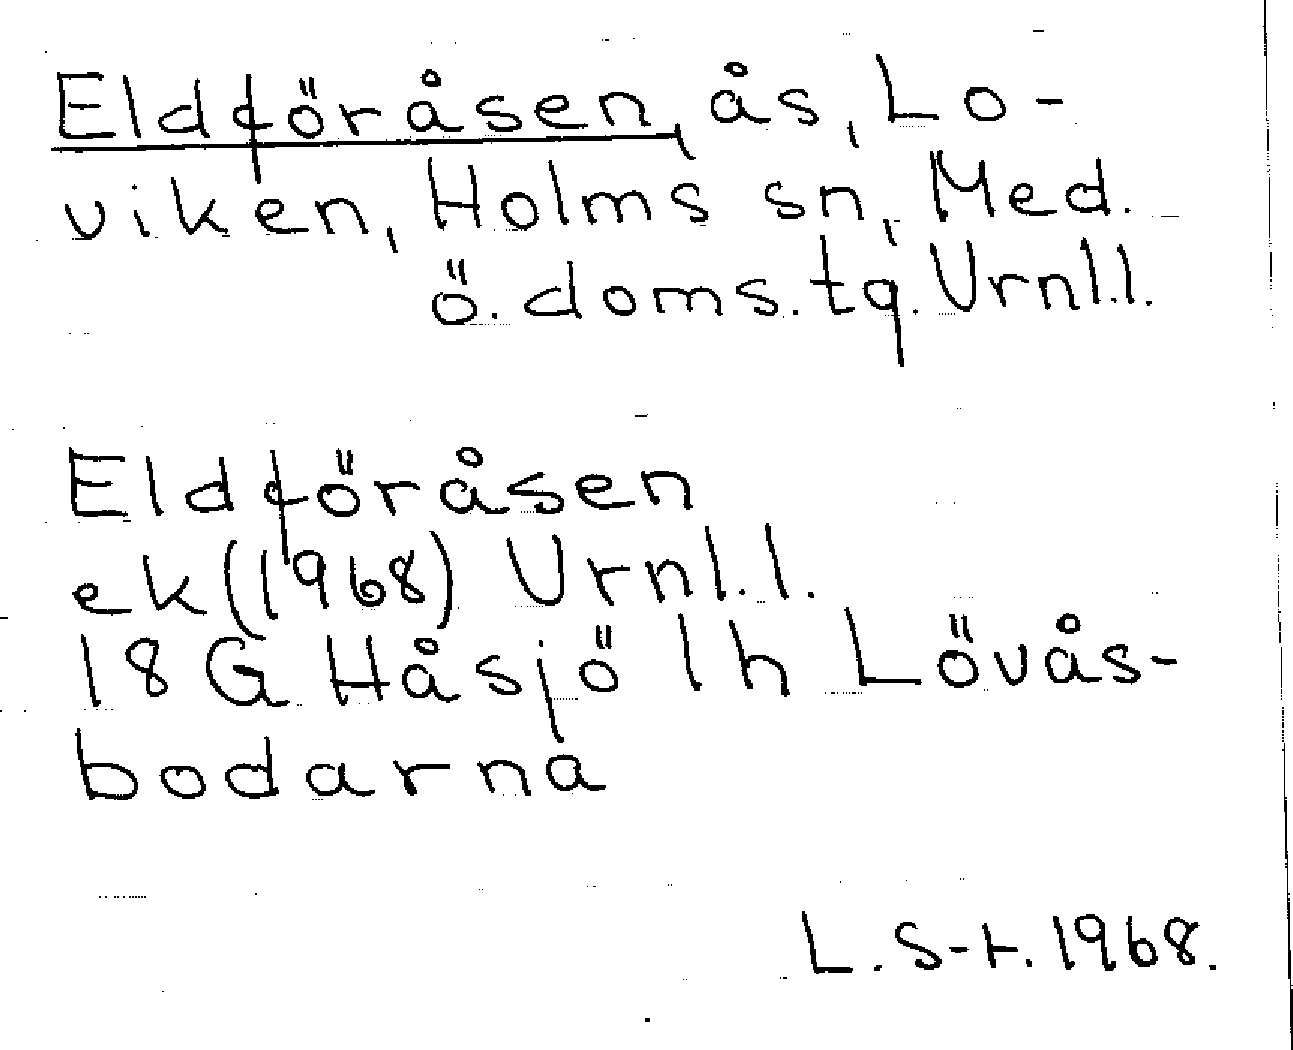 Eldföråsen, ås, Lo-
viken, Holms sn, Med.
ö. doms. tg. Vrnl.l.
Eldföråsen
ek (1968) Vrnl.l.
18 G Håsjö 1h Lövås-
bodarna
L. S-t. 1968.